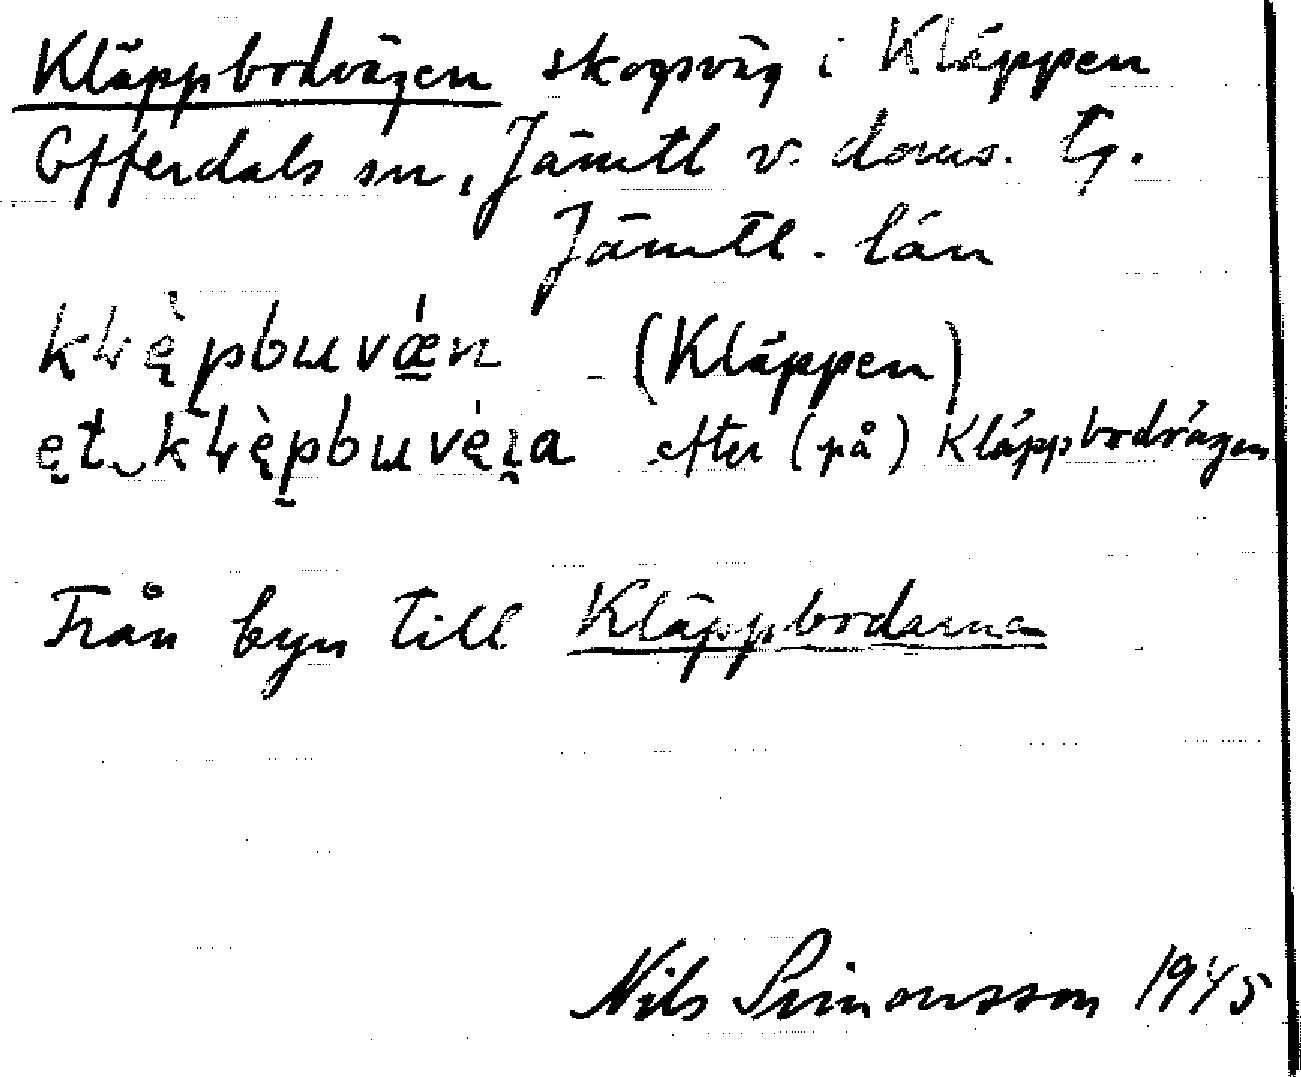 Kläppbodvägen skogsväg i Kläppen
Offerdals sn, Jämtl v. doms. Tg.
Jämtl. län
(Kläppen)
efter (på) Kläppbodvägen
Från byn till Kläppbodarna
Nils Simonsson 1945